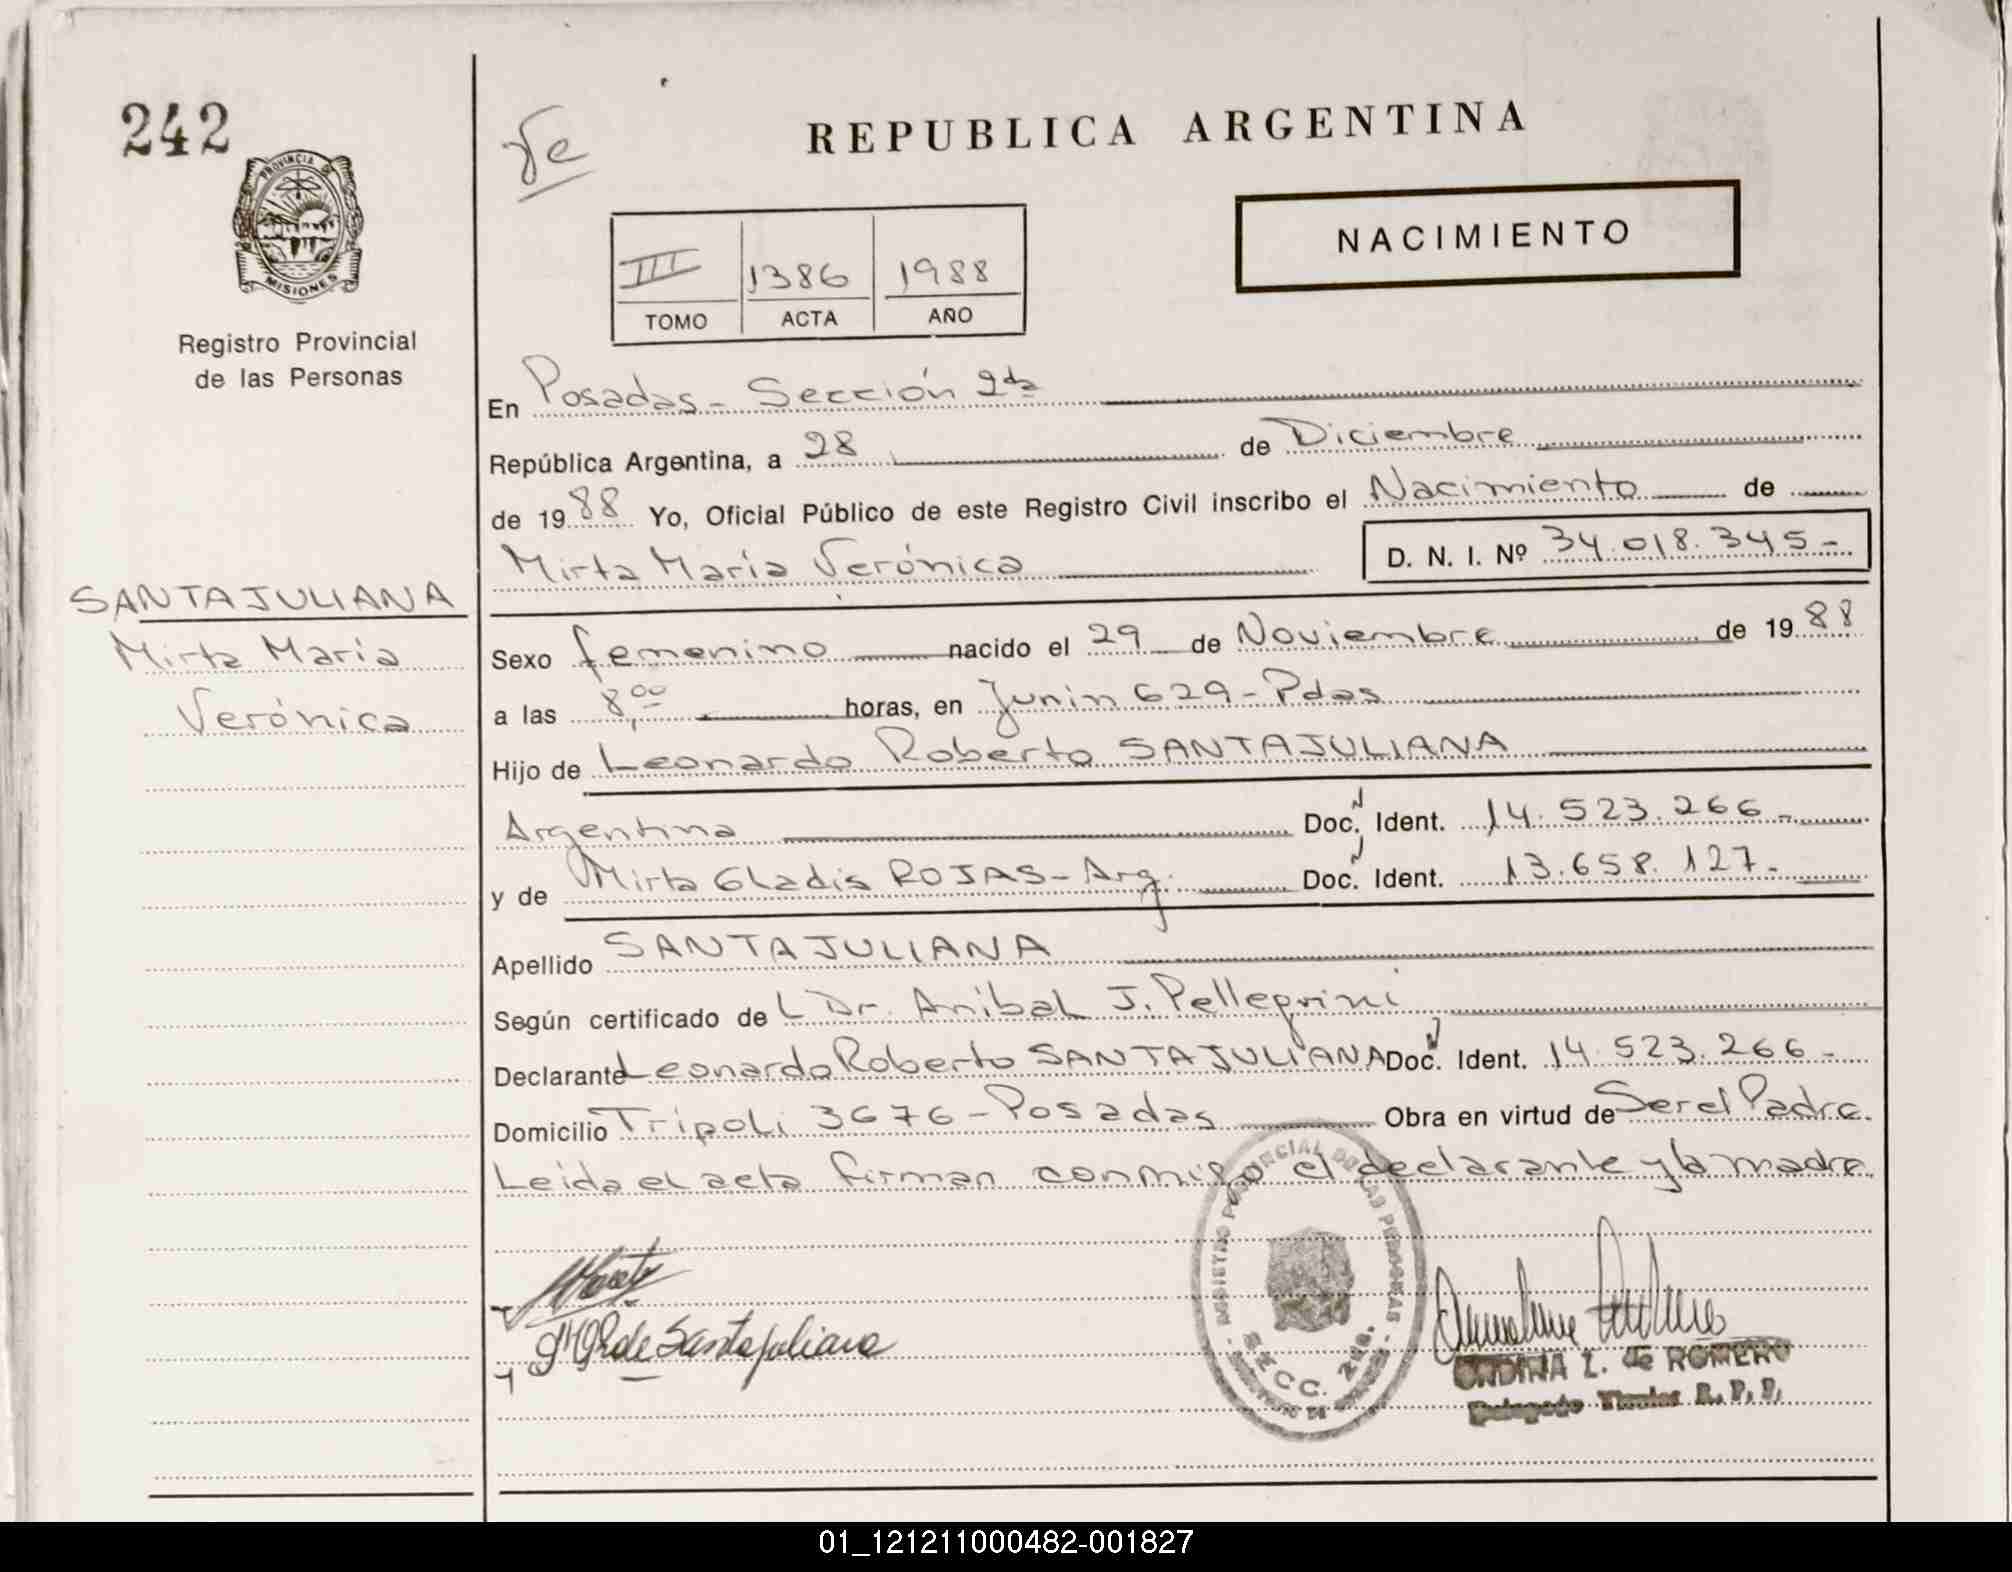 242
PROVINCIA DE
MISIONES
Registro Provincial
de las Personas
SANTAJULIANA
Mirta María
Verónica
REPUBLICA ARGENTINA
NACIMIENTO
III 1386 1988
TOMO ACTA AÑO
En Posadas - Sección 2da
República Argentina, a 28 de Diciembre
de 1988 Yo, Oficial Público de este Registro Civil inscribo el Nacimiento de
Mirta María Verónica D. N. I. Nº 34.018.345-
Sexo femenino nacido el 29 de Noviembre de 1988
a las 8,00 horas, en Junin 629 - Pdas
Hijo de Leonardo Roberto SANTAJULIANA
Argentina Doc. Ident. 14.523.266-
y de Mirta Gladis ROJAS - Arg. Doc. Ident. 13.658.127-
Apellido SANTAJULIANA
Según certificado de L Dr. Anibal J. Pellegrini
Declarante Leonardo Roberto SANTAJULIANA Doc. Ident. 14.523.266-
Domicilio Tripoli 3676 - Posadas Obra en virtud de Ser el Padre.
Leída el acta firman conmigo el declarante y la madre.
REGISTRO PROVINCIAL DE LAS PERSONAS
SECC. 2da.
de Santajuliana
ONDINA Z. de ROMERO
Delegado Titular R. P. P.
01_121211000482-001827